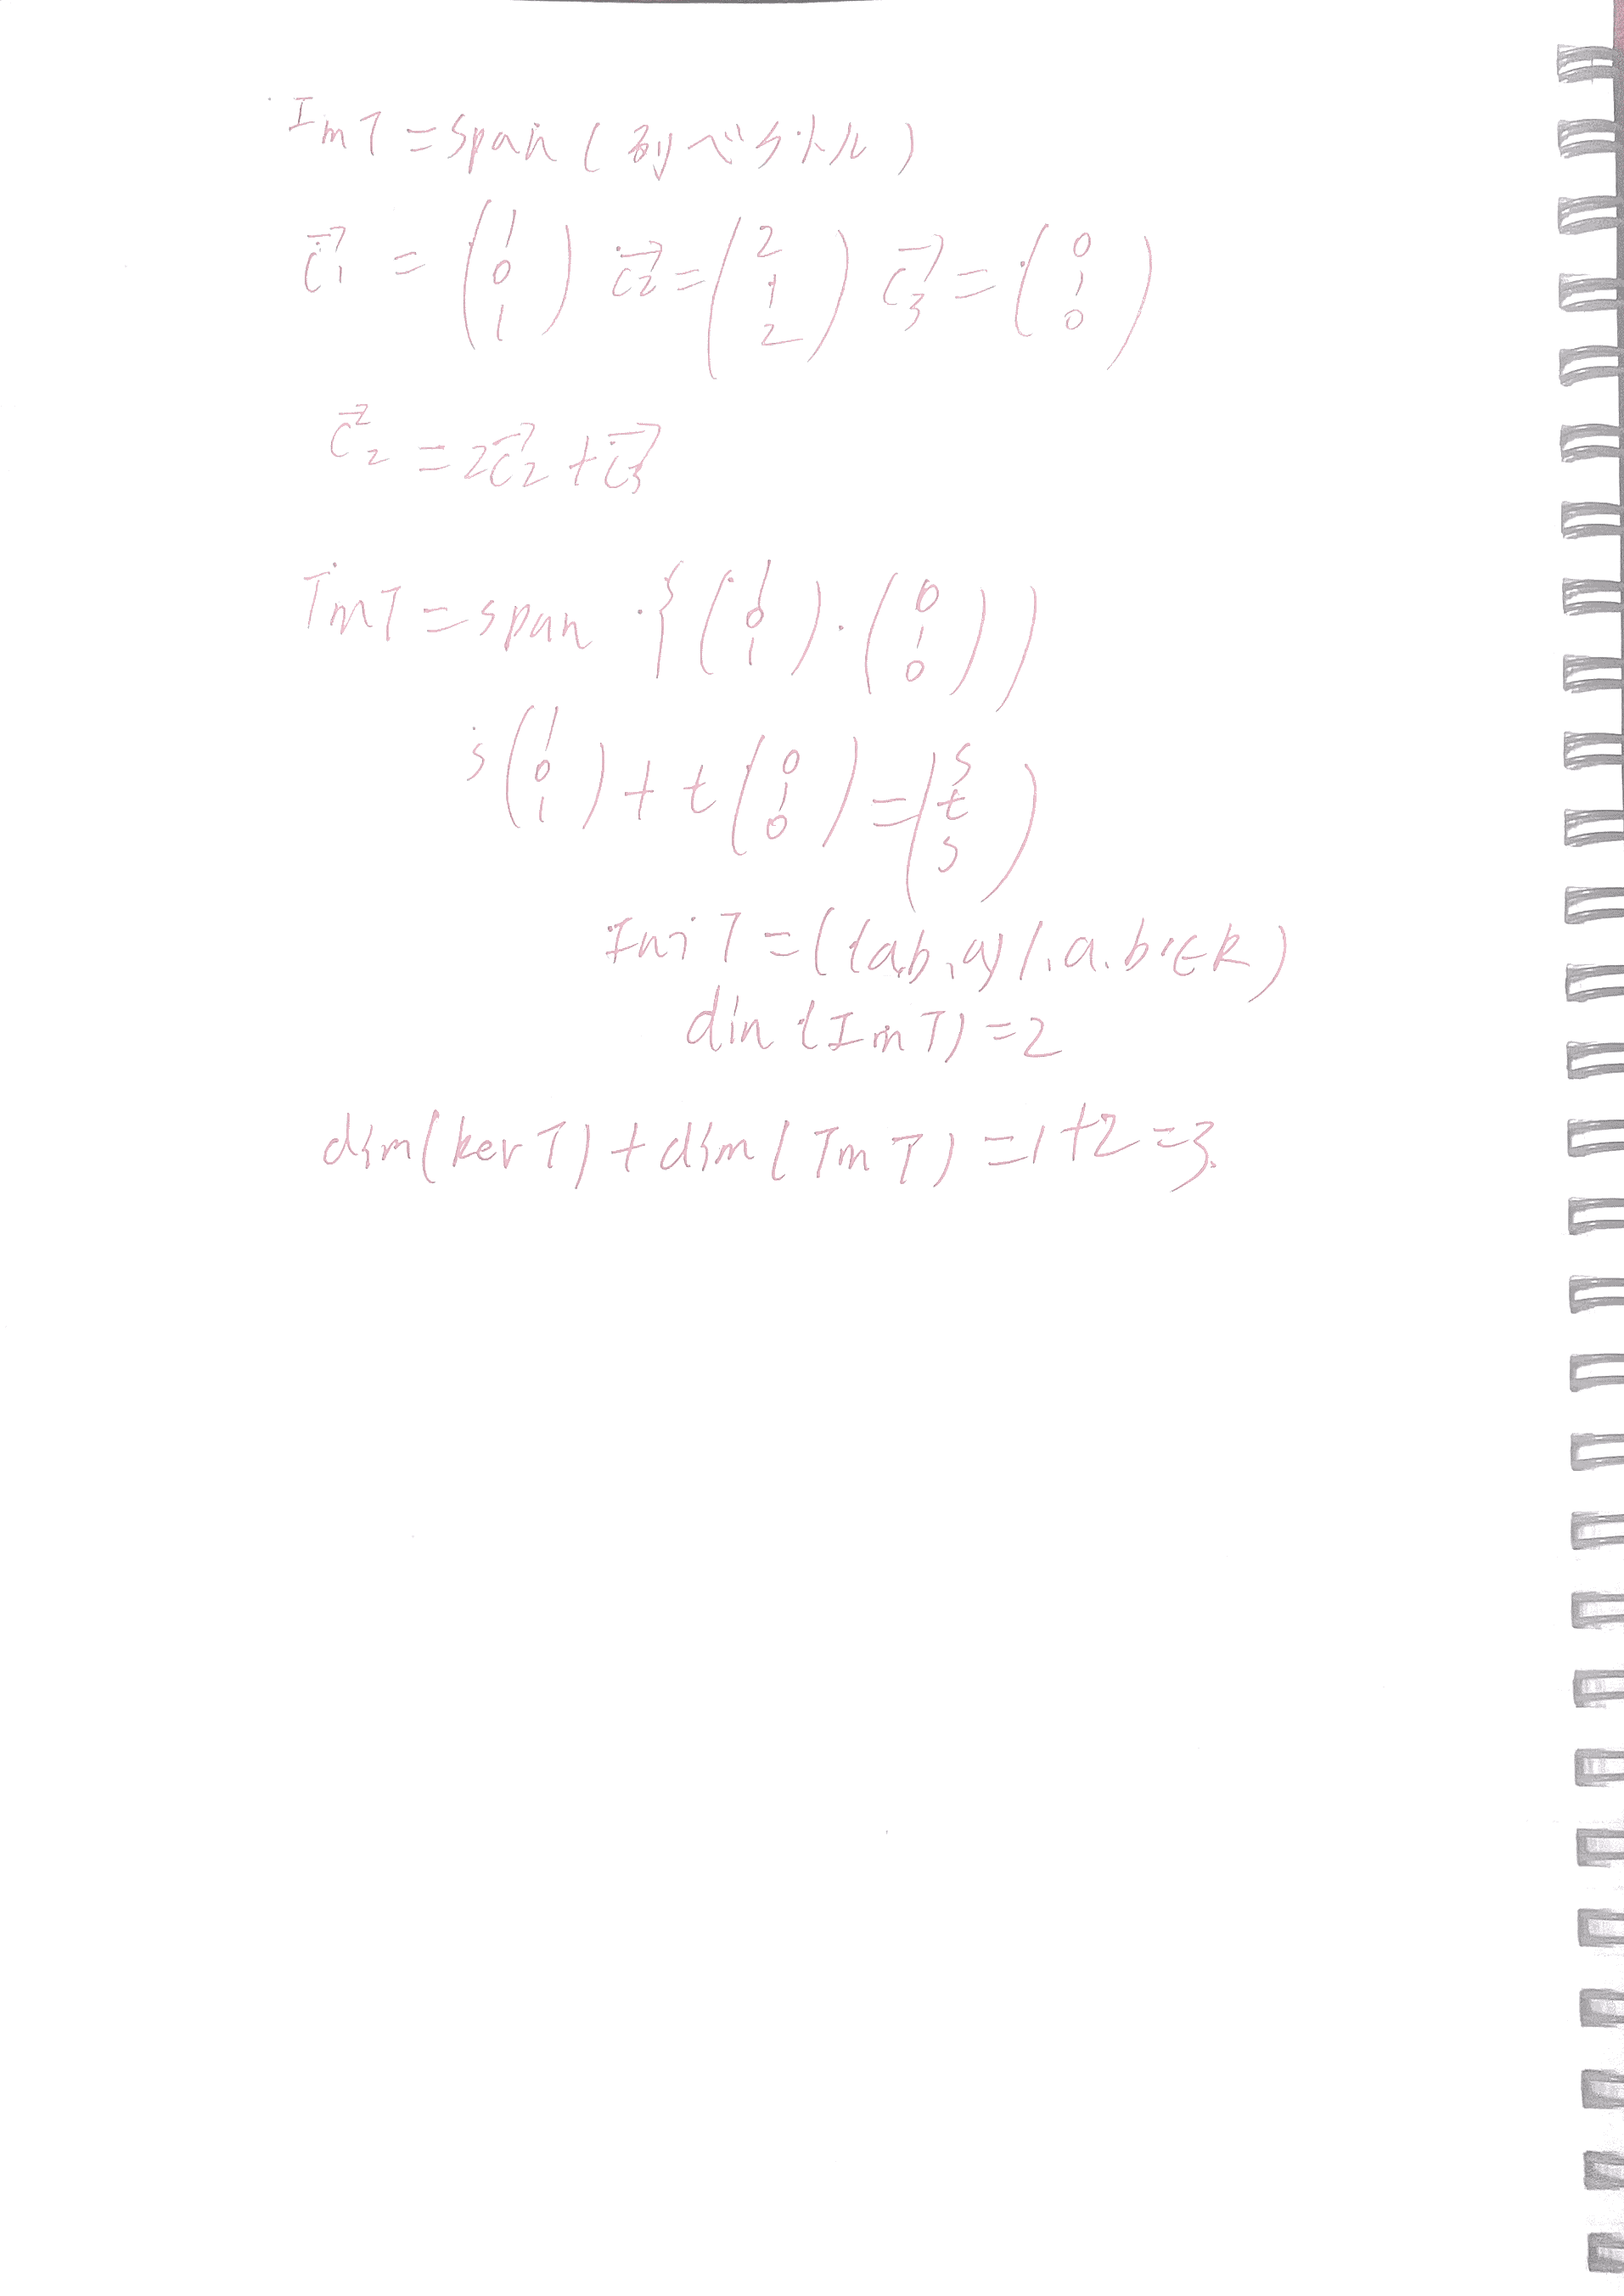 ImT = span (列ベクトル)
c₁→ = (1 0 1) c₂→ = (2 1 2) c₃→ = (0 1 0)
c₂→ = 2c₂→ + c₃→
ImT = span {(1 0 1), (0 1 0)}
s(1 0 1) + t(0 1 0) = (s t s)
Im T = {(a,b,a) | a,b ∈ R}
din (Im T) = 2
dim(ker T) + dim(Im T) = 1+2 = 3.